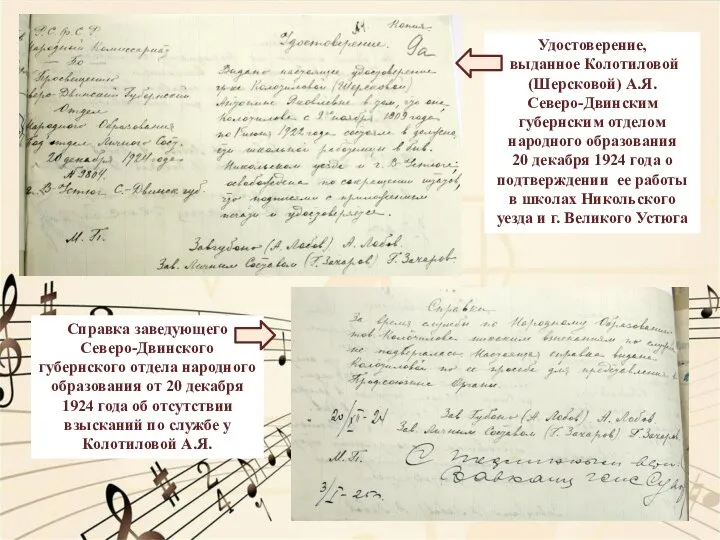 Р.С.Ф.С.Р
Народный Комиссариат
— По —
Просвещению
Отдел
Народного Образования
Подотдел Личного Сост.
20 декабря 1924 года
№ 9804.
г. В Устюг С.-Двинск губ.
Копия.
Удостоверение.
9а
Выдано настоящее удостоверение
гр-ке Колотиловой (Шерсковой)
Яковлевне в том, что она
Колотилова с 1909 года
по 1922 года состояла в
школьной работницы в
Никольском уезде и г. В Устюге,
освобождена по сокращении штатов,
что подписями с приложением
печати и удостоверяется.
М. П.
Завгубоно (А Лобов) А. Лобов.
Зав. Личным Составом (Г. Захаров) Г. Захаров
Удостоверение,
выданное Колотиловой
(Шерсковой) А.Я.
Северо-Двинским
губернским отделом
народного образования
20 декабря 1924 года о
подтверждении ее работы
в школах Никольского
уезда и г. Великого Устюга
Справка заведующего
Северо-Двинского
губернского отдела народного
образования от 20 декабря
1924 года об отсутствии
взысканий по службе у
Колотиловой А.Я.
Справка
За время службы по Народному Образованию
тов. Колотилова никаким взысканиям по службе
не подвергалась Настоящая справка выдана
Колотиловой по ее просьбе для представления в
20/XII-24
Зав Губоно (А Лобов) А. Лобов
Зав. Личным Составом (Г. Захаров) Г. Захаров
М. П.
С подлинным
3/I-25г.